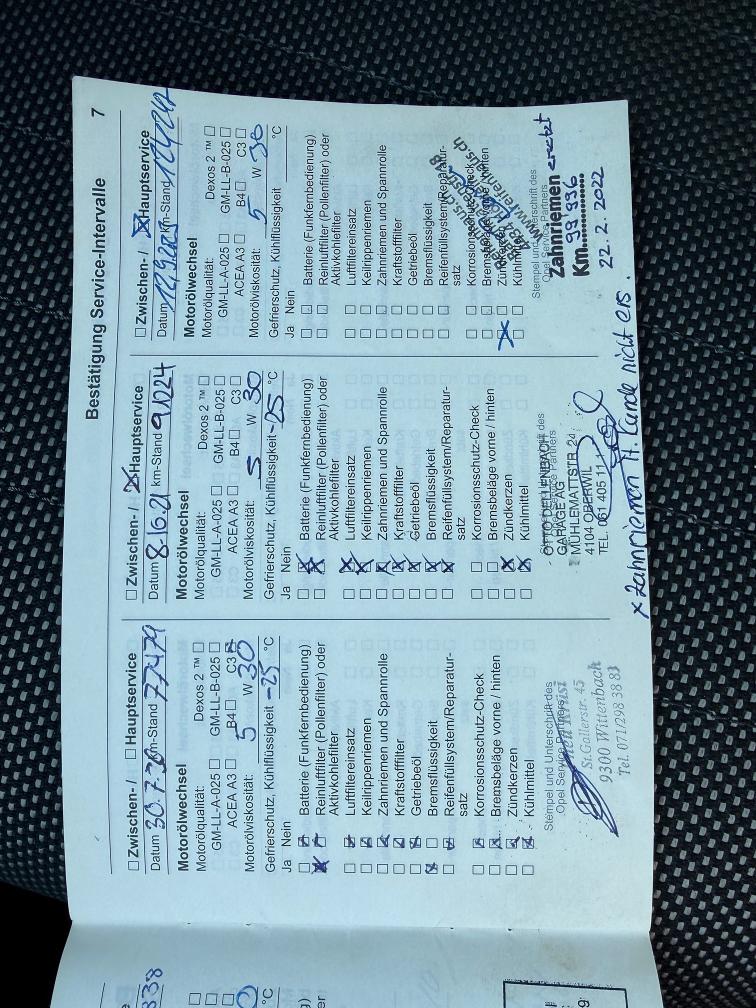 Bestätigung Service-Intervalle 7
Zwischen- / Hauptservice
Datum 30.7.20 km-Stand 77479
Motorölwechsel
Motorölqualität: Dexos 2 ™
GM-LL-A-025 GM-LL-B-025
ACEA A3 B4 C3
Motorölviskosität: 5 W 30
Gefrierschutz, Kühlflüssigkeit -25 °C
Ja Nein
Batterie (Funkfernbedienung)
Reinluftfilter (Pollenfilter) oder
Aktivkohlefilter
Luftfiltereinsatz
Keilrippenriemen
Zahnriemen und Spannrolle
Kraftstofffilter
Getriebeöl
Bremsflüssigkeit
Reifenfüllsystem/Reparatur-
satz
Korrosionsschutz-Check
Bremsbeläge vorne / hinten
Zündkerzen
Kühlmittel
Stempel und Unterschrift des
Opel Service Partners
St.Gallerstr. 45
9300 Wittenbach
Tel. 071/298 38 83
Zwischen- / Hauptservice
Datum 8.16.21 km-Stand 91024
Motorölwechsel
Motorölqualität: Dexos 2 ™
GM-LL-A-025 GM-LL-B-025
ACEA A3 B4 C3
Motorölviskosität: 5 W 30
Gefrierschutz, Kühlflüssigkeit -25 °C
Ja Nein
Batterie (Funkfernbedienung)
Reinluftfilter (Pollenfilter) oder
Aktivkohlefilter
Luftfiltereinsatz
Keilrippenriemen
Zahnriemen und Spannrolle
Kraftstofffilter
Getriebeöl
Bremsflüssigkeit
Reifenfüllsystem/Reparatur-
satz
Korrosionsschutz-Check
Bremsbeläge vorne / hinten
Zündkerzen
Kühlmittel
GARAGE AG
MÜHLEMATTSTR. 24
4104 OBERWIL
TEL. 061 405 11 11
x Zahnriemen lt. Kunde nicht ers.
Zwischen- / Hauptservice
Datum km-Stand
Motorölwechsel
Motorölqualität: Dexos 2 ™
GM-LL-A-025 GM-LL-B-025
ACEA A3 B4 C3
Motorölviskosität: 5 W 30
Gefrierschutz, Kühlflüssigkeit °C
Ja Nein
Batterie (Funkfernbedienung)
Reinluftfilter (Pollenfilter) oder
Aktivkohlefilter
Luftfiltereinsatz
Keilrippenriemen
Zahnriemen und Spannrolle
Kraftstofffilter
Getriebeöl
Bremsflüssigkeit
Reifenfüllsystem/Reparatur-
satz
Korrosionsschutz-Check
Bremsbeläge vorne / hinten
Kühlmittel
Stempel und Unterschrift des
Opel Service Partners
Zahnriemen ersetzt
Km 99'936
22.2.2022